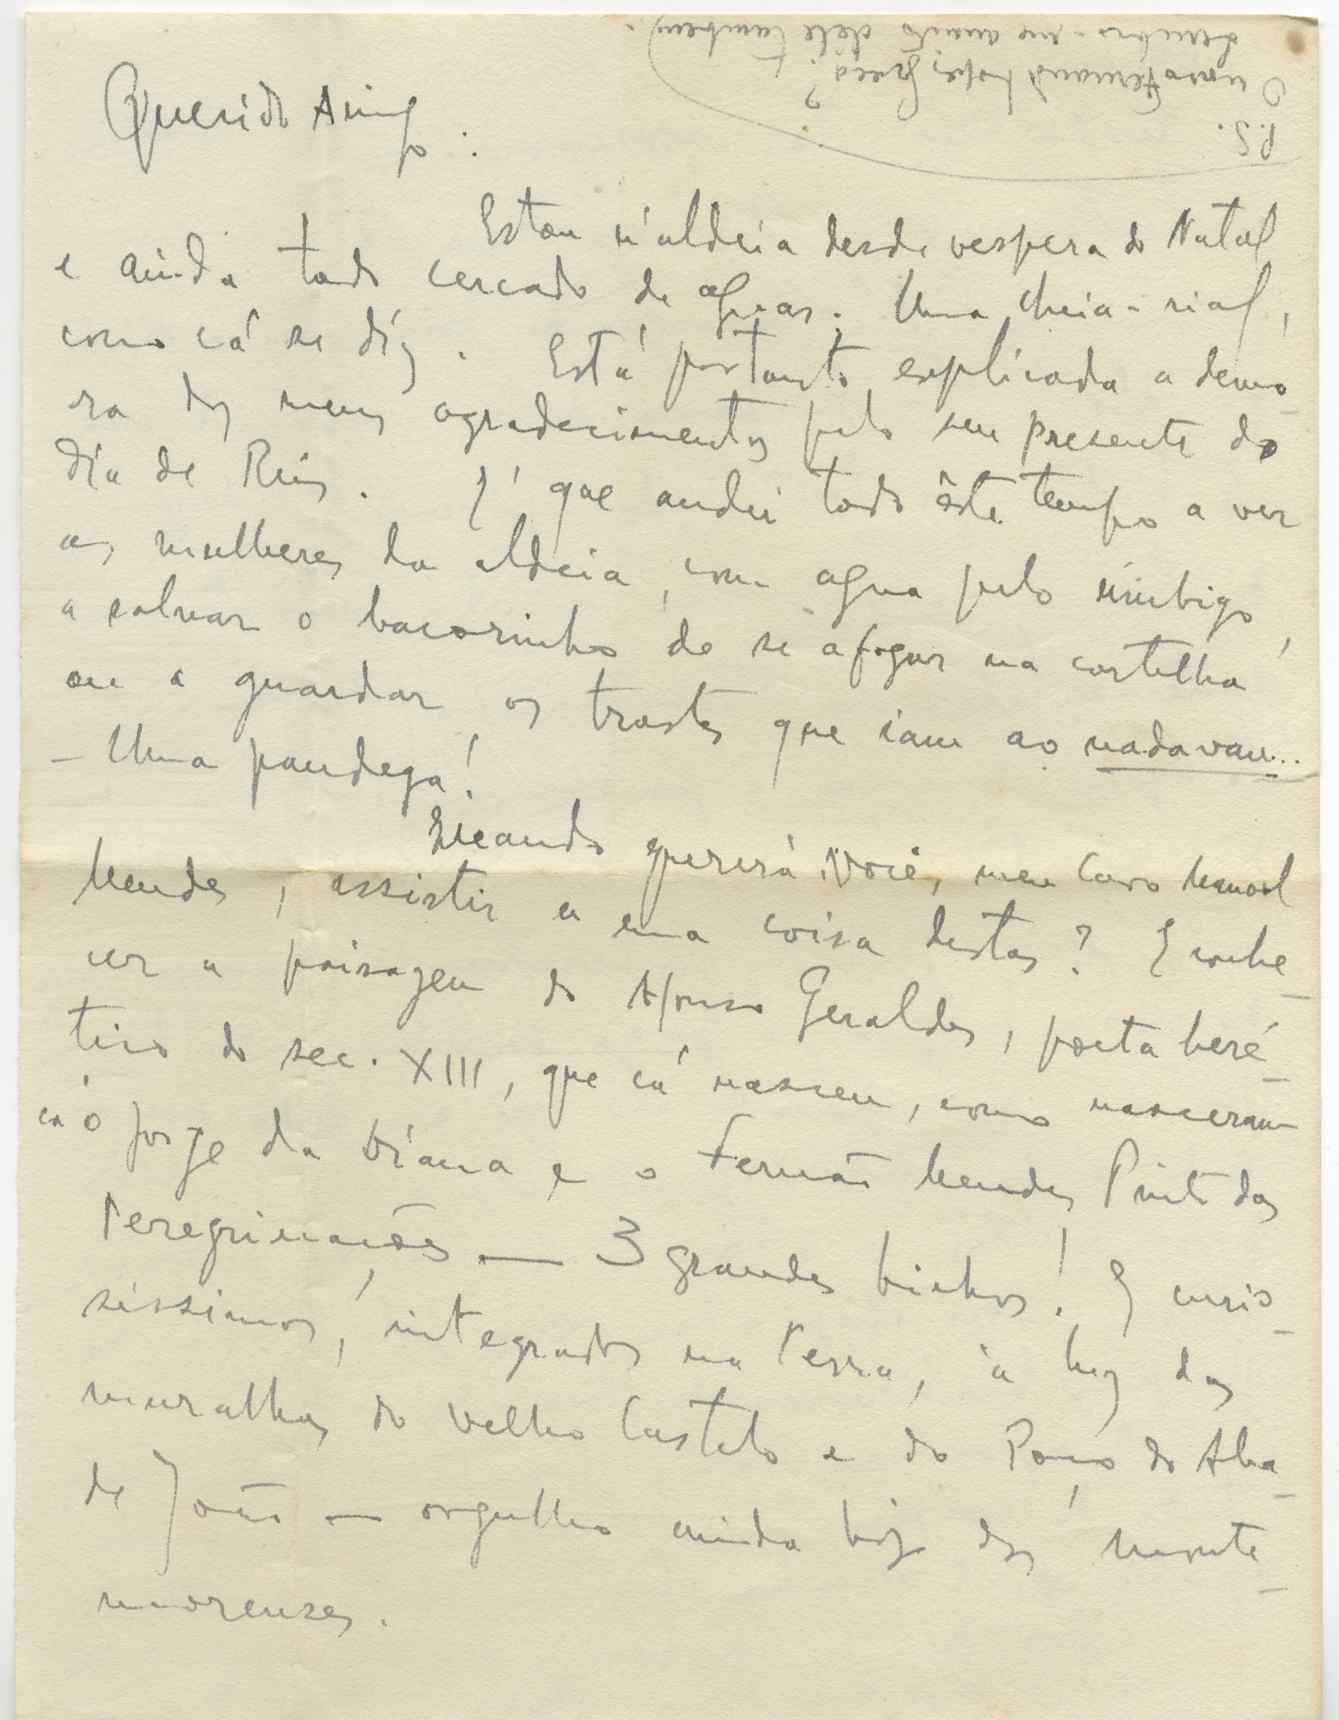 Querido Amigo:
Estou n'aldeia desde vespera do Natal
e ainda todo cercado de aguas. Uma cheia-rial,
como cá se díz. Está portanto explicada a demo-
ra dos meus agradecimentos pelo seu presente do
dia de Reis. É que andei todo êste tempo a ver
as mulheres da aldeia, com agua pelo úmbigo,
a salvar o bacorinho de se afogar na cortelha
ou a guardar os trastes que iam ao nadavau...
- Uma pandega!
Quando quererá Você, meu Caro Manoel
Mendes, assistir a uma coisa destas? E conhe-
cer a paisagem do Afonso Geraldes, poeta heré-
tico do sec. XIII, que cá nasceu, como nasceram
cá o Jorge da
e o Fernão Mendes Pinto das
Peregrinações — 3 grandes bichos! E curio-
sissimos, integrados na Terra, à luz das
muralhas do velho Castelo e do Paço do Aba-
de João — orgulho ainda hoje dos monte-
morenses.
P.S.
O nosso Fernando Lopes Graça?
Lembro-me muito dele tambem.